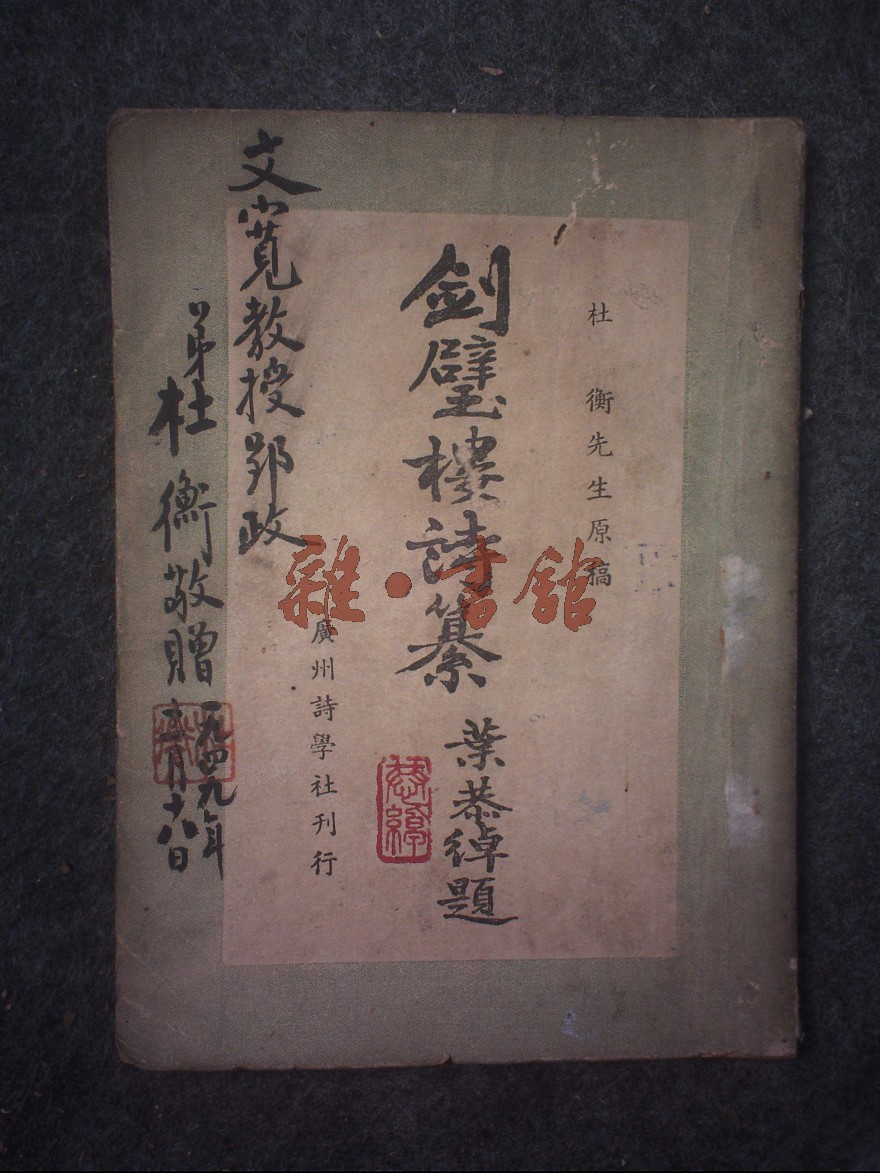 杜 衡先生原稿
劍璧樓詩纂
葉恭綽題
恭綽
廣州詩學社刊行
文寬教授郢政
弟杜衡敬贈
一九四九年
月十八日
雜·書館